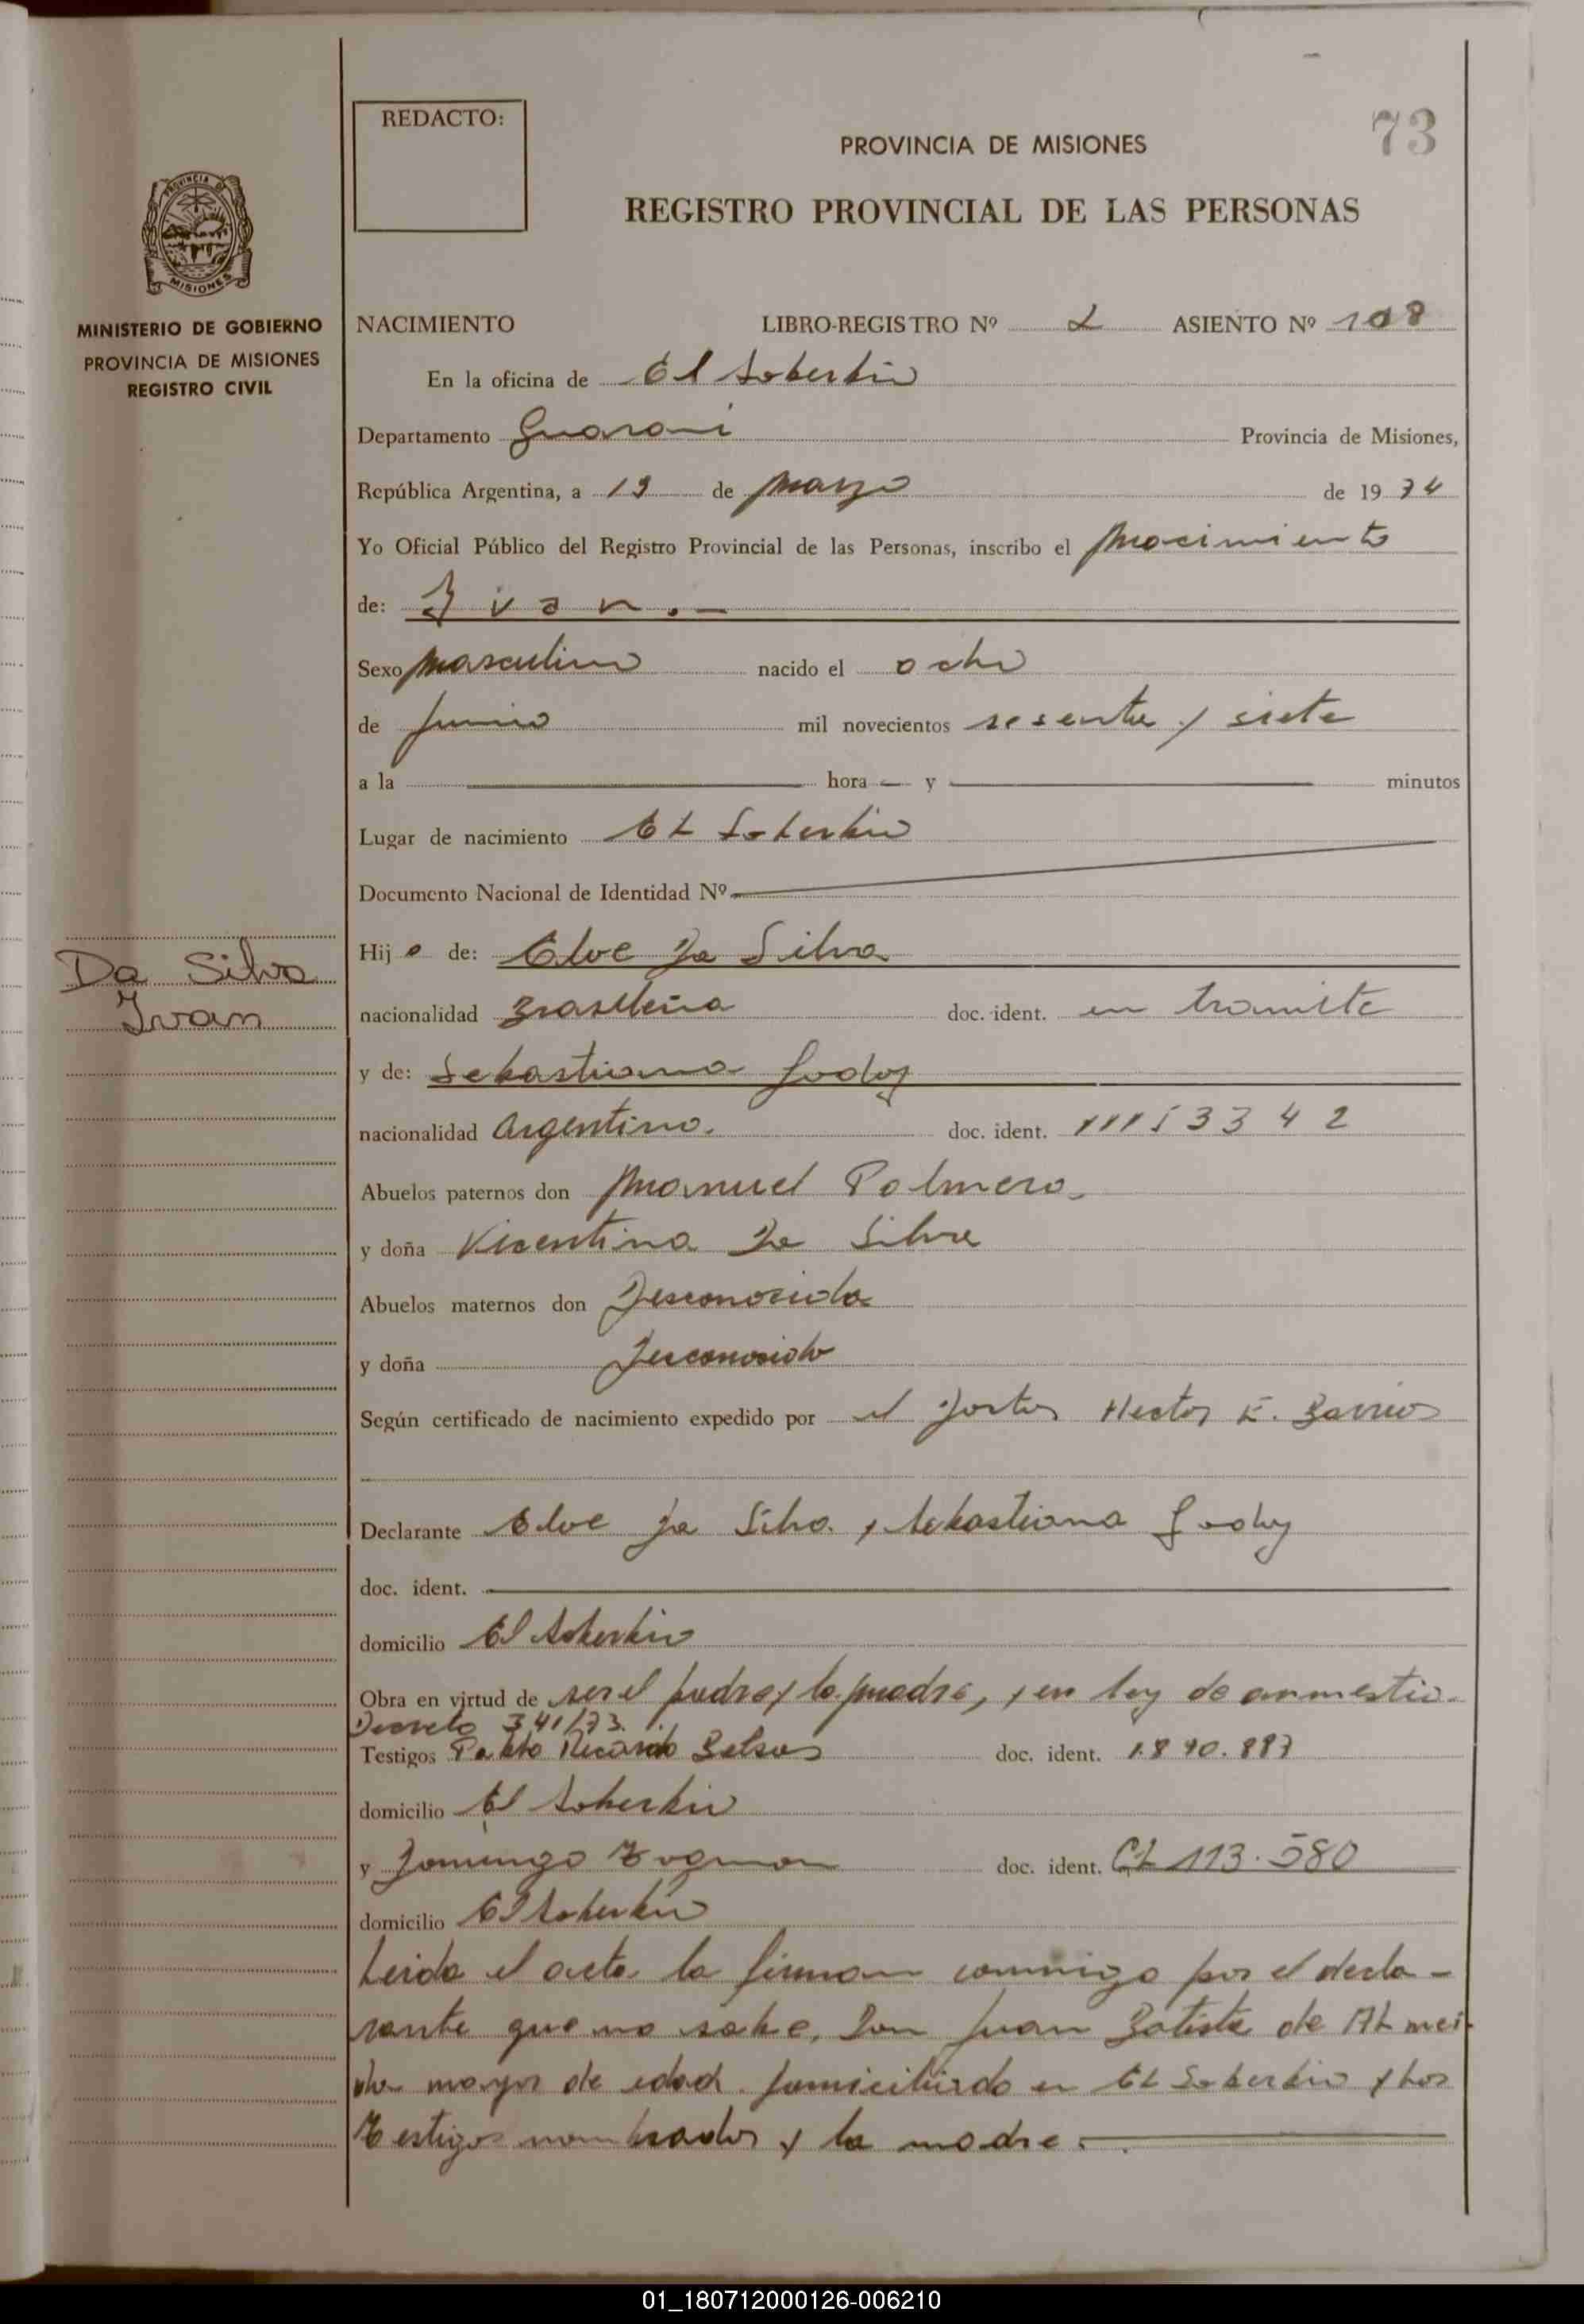 REDACTO:
PROVINCIA DE MISIONES
73
REGISTRO PROVINCIAL DE LAS PERSONAS
PROVINCIA DE
MISIONES
MINISTERIO DE GOBIERNO
PROVINCIA DE MISIONES
REGISTRO CIVIL
NACIMIENTO LIBRO-REGISTRO Nº 2 ASIENTO Nº 108
En la oficina de El Soberbio
Departamento Guarani Provincia de Misiones,
República Argentina, a 19 de marzo de 1974
Yo Oficial Público del Registro Provincial de las Personas, inscribo el Nacimiento
de: Ivan.-
Sexo masculino nacido el ocho
de Junio mil novecientos sesenta y siete
a la hora y minutos
Lugar de nacimiento El Soberbio
Documento Nacional de Identidad Nº
Da Silva
Ivan
Hijo de: Eloe Da Silva
nacionalidad Brasileña doc. ident. en tramite
y de: Sebastiana Godoy
nacionalidad Argentina. doc. ident. 11153342
Abuelos paternos don Manuel Palmero
y doña Vicentina Da Silva
Abuelos maternos don Desconocido
y doña Desconocido
Según certificado de nacimiento expedido por el Doctor Hector E. Barrios
Declarante Eloe Da Silva y Sebastiana Godoy
doc. ident.
domicilio El Soberbio
Obra en virtud de ser el padre y la madre, y en ley de amnestia.
Decreto 341/73.
Testigos Pablo Ricardo doc. ident. 1.840.887
domicilio El Soberbio
y Domingo doc. ident. CI 113.580
domicilio El Soberbio
Leida el acta la firman conmigo por el decla-
rante que no sabe, Don Juan Batista de Almei-
da mayor de edad domiciliado en El Soberbio y los
Testigos nombrados y la madre.
01_180712000126-006210